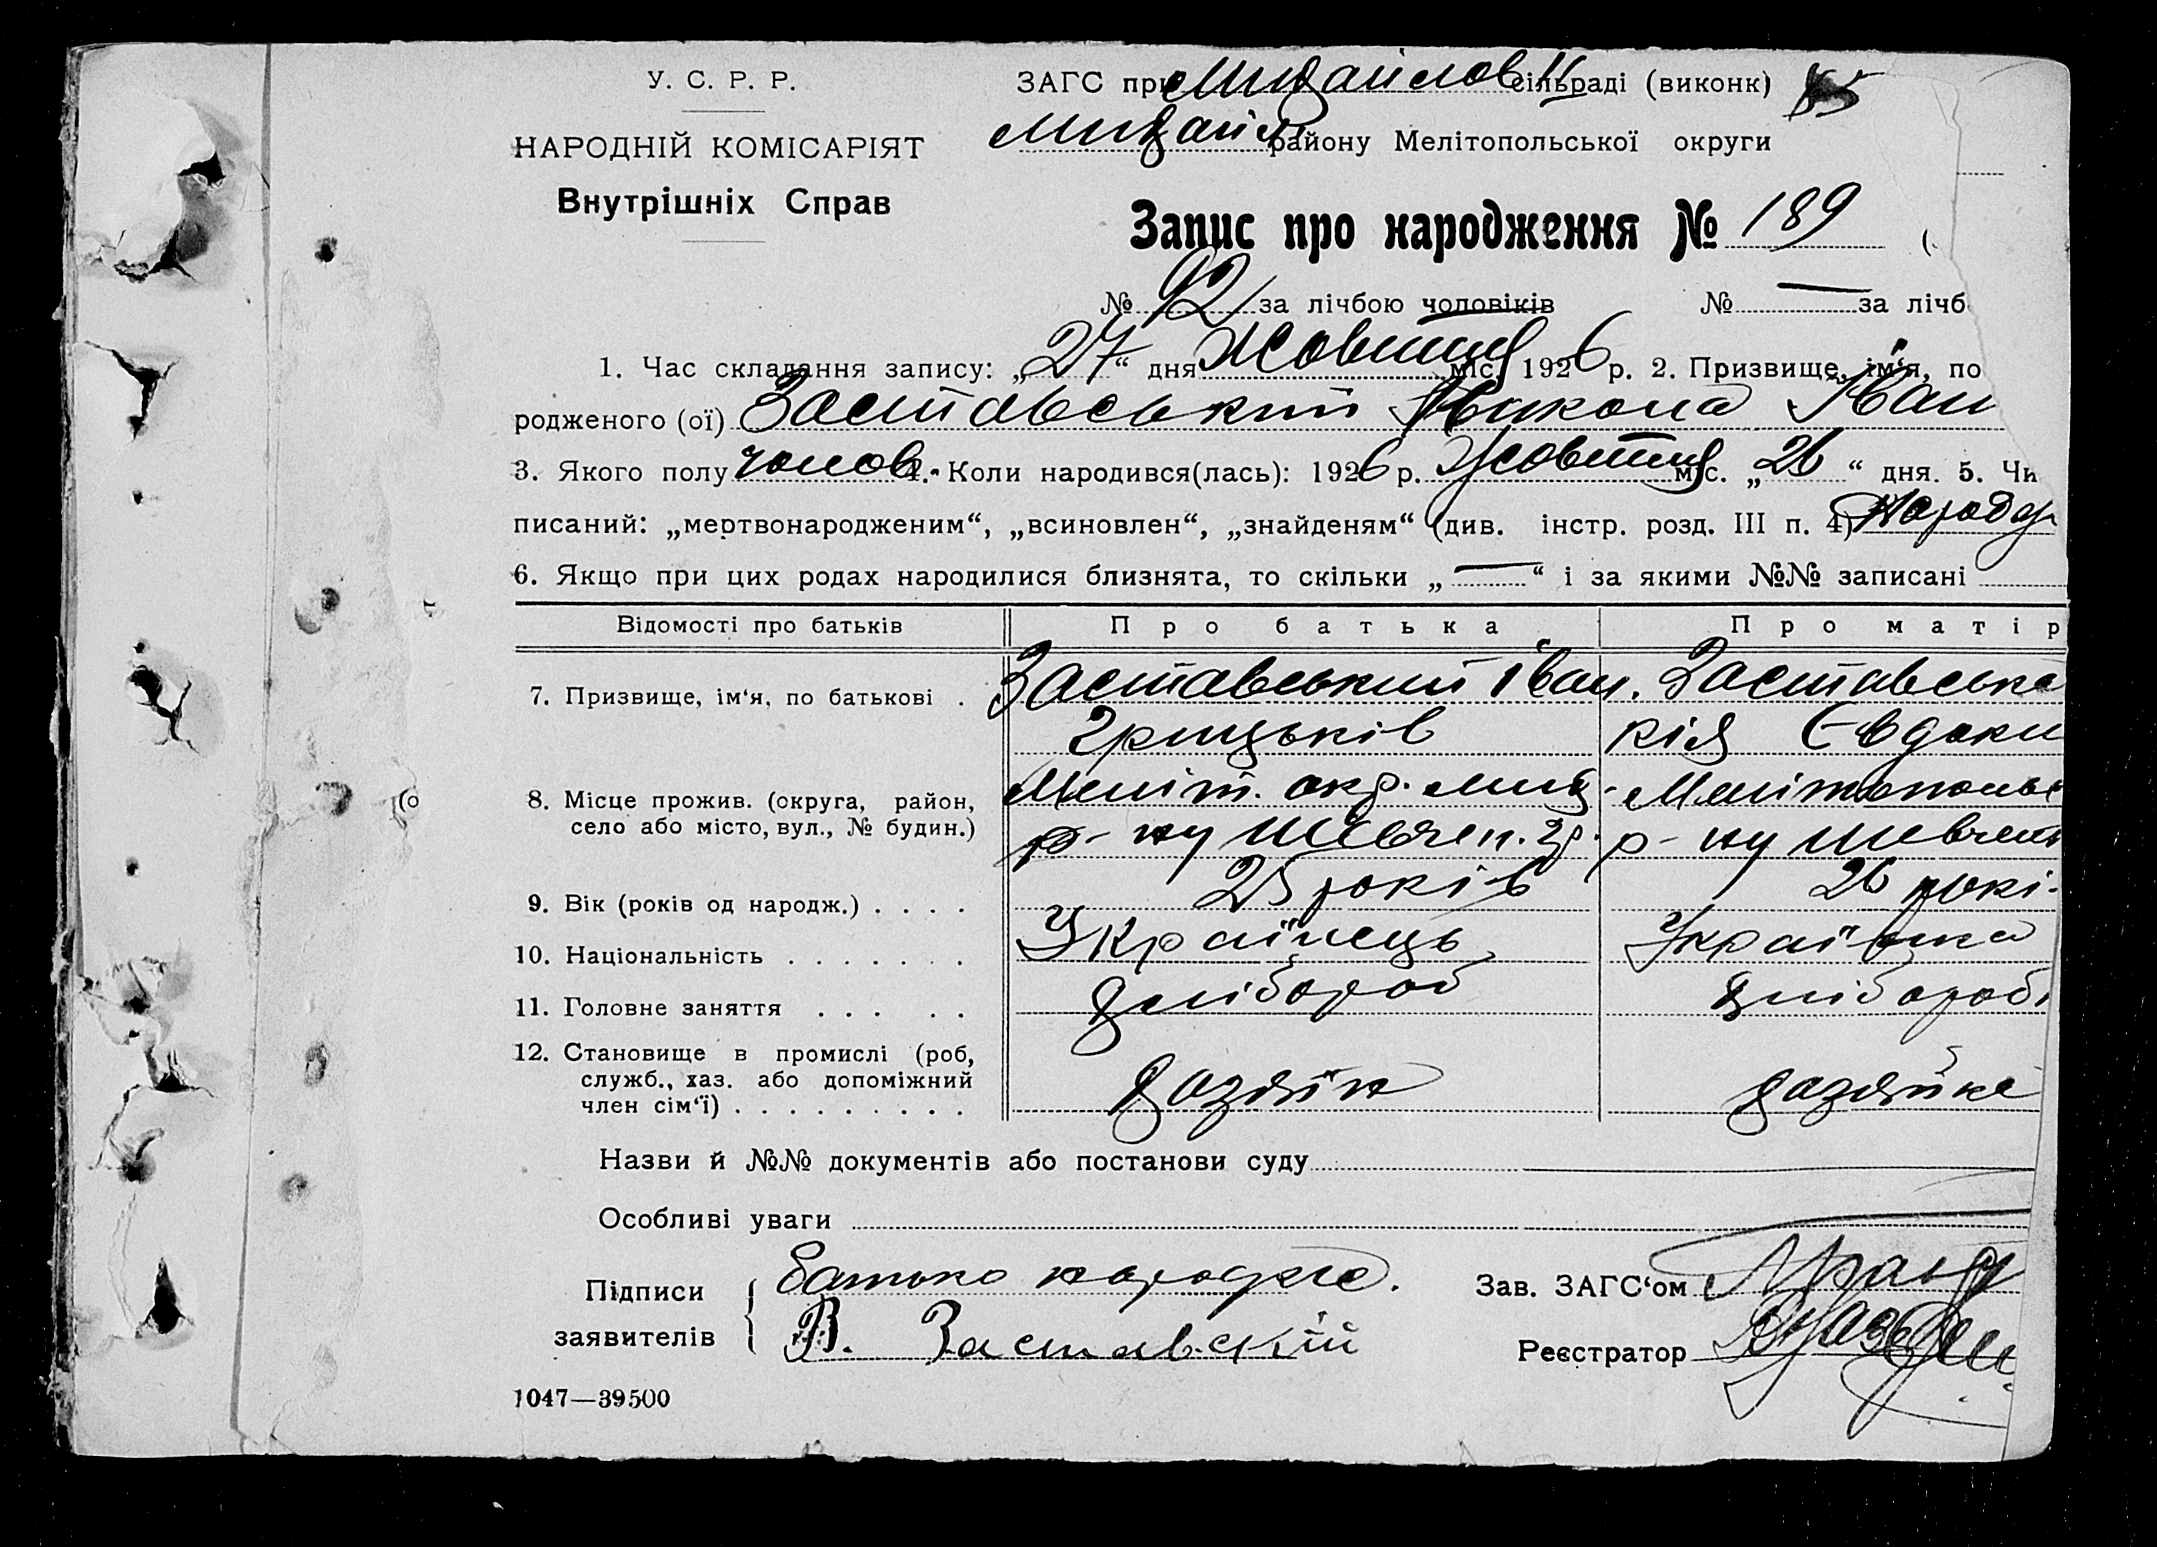 У. С. Р. Р.
НАРОДНІЙ КОМІСАРІЯТ
Внутрішніх Справ
ЗАГС при Михайлов II сільраді (виконк)
Михайл району Мелітопольської округи
Запис про народження № 189
№ 92 за лічбою чоловіків № — за лічб
1. Час складання запису: „27“ дня Жовтня міс. 1926 р. 2. Призвище, ім‘я, по
родженого (ої) Заставський Микола Іван
3. Якого полу чолов. 4. Коли народився(лась): 1926 р. Жовтня міс. „26“ дня. 5. Чи
писаний: „мертвонародженим“, „всиновлен“, „знайденям“ (див. інстр. розд. III п. 4)
6. Якщо при цих родах народилися близнята, то скільки „—“ і за якими №№ записані
Відомості про батьків Про батька Про матір
7. Призвище, ім‘я, по батькові . Заставський Іван. Заставська
Грицьків кія Євдоки
8. Місце прожив. (округа, район, Меліт. окр. Мих. Мелітопольс
село або місто, вул., № будин.) р-ну Шевчен. р-ну Шевчен
9. Вік (років од народж.) . . . . 25 років 26 рокі
10. Національність . . . . . . . Українець Українка
11. Головне заняття . . . . . хлібороб хлібороб
12. Становище в промислі (роб,
служб., хаз. або допоміжний
член сім‘ї) . . . . . . . . . хазяїн хазяйка
Назви й №№ документів або постанови суду
Особливі уваги
Підписи Батько народже.
заявителів В. Заставскій
Зав. ЗАГС‘ом
Реєстратор
1047—39500